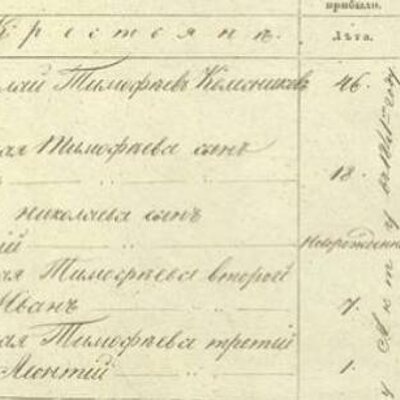 прибыли.
Крестьянъ.
Лѣта.
лай Тимофѣевъ Колесниковъ 46.
лая Тимофѣева сынъ
18.
николаева сынъ
ій новорожденъ
лая Тимофѣева второй
Иванъ 7.
лая Тимофѣева третій
Леонтій 1.